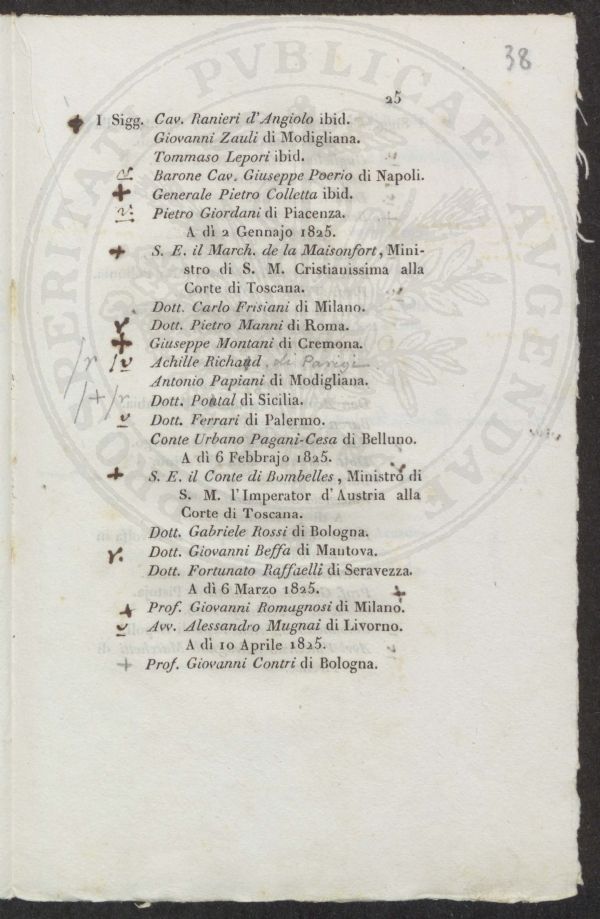 38
25
I Sigg. Cav. Ranieri d'Angiolo ibid.
Giovanni Zauli di Modigliana.
Tommaso Lepori ibid.
Barone Cav. Giuseppe Poerio di Napoli.
Generale Pietro Colletta ibid.
Pietro Giordani di Piacenza.
A dì 2 Gennajo 1825.
S. E. il March. de la Maisonfort, Mini-
stro di S. M. Cristianissima alla
Corte di Toscana.
Dott. Carlo Frisiani di Milano.
Dott. Pietro Manni di Roma.
Giuseppe Montani di Cremona.
Achille Richard. di Parigi
Antonio Papiani di Modigliana.
Dott. Pontal di Sicilia.
Dott. Ferrari di Palermo.
Conte Urbano Pagani-Cesa di Belluno.
A dì 6 Febbrajo 1825.
S. E. il Conte di Bombelles, Ministro di
S. M. l'Imperator d'Austria alla
Corte di Toscana.
Dott. Gabriele Rossi di Bologna.
Dott. Giovanni Beffa di Mantova.
Dott. Fortunato Raffaelli di Seravezza.
A dì 6 Marzo 1825.
Prof. Giovanni Romagnosi di Milano.
Avv. Alessandro Mugnai di Livorno.
A dì 10 Aprile 1825.
Prof. Giovanni Contri di Bologna.
PROSPERITATI PVBLICAE AVGENDAE